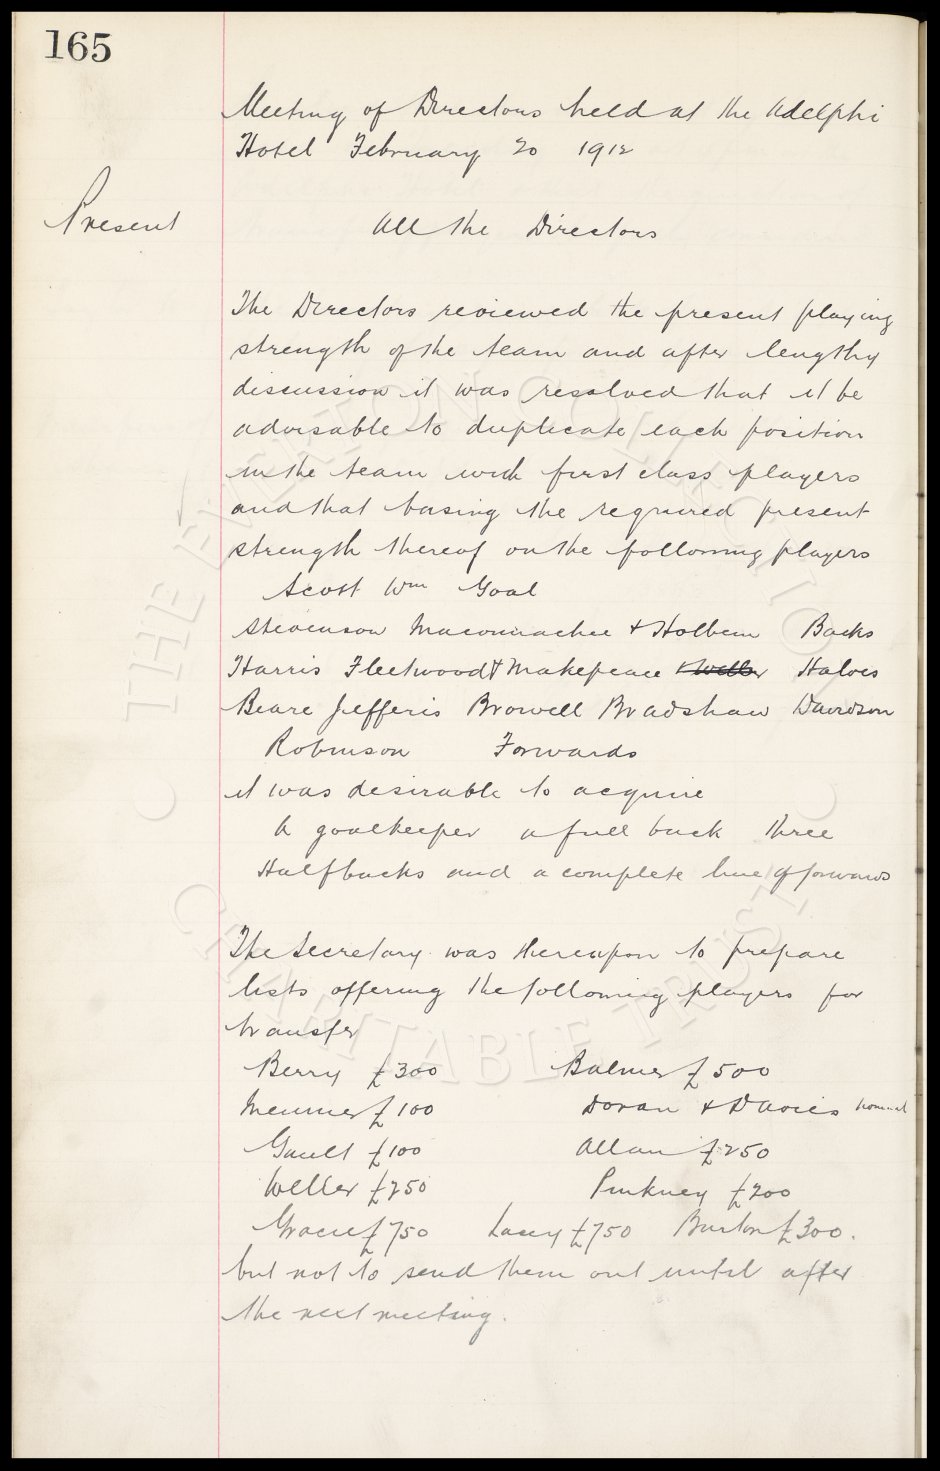 165
Meeting of Directors held at the Adelphi
Hotel February 20 1912
Present
All the Directors
The Directors reviewed the present playing
strength of the team and after lengthy
discussion it was resolved that it be
advisable to duplicate each position
in the team with first class players
and that basing the required present
strength thereof on the following players
Scott Wm Goal
Stevenson Maconnachie & Holbem Backs
Harris Fleetwood & Makepeace & Weller Halves
Beare Jefferis Browell Bradshaw Davidson
Robinson Forwards
it was desirable to acquire
A goalkeeper a full back three
Halfbacks and a complete line of forwards
The Secretary was thereupon to prepare
lists offering the following players for
transfer
Berry £300 Balmer £500
Meunier £100 Doran & Davies nominal
Gault £100 Allan £250
Weller £250 Pinkney £200
Gracie £750 Lacey £750 Burton £300.
but not to send them out until after
the next meeting.
THE EVERTON COLLECTION
CHARITABLE TRUST